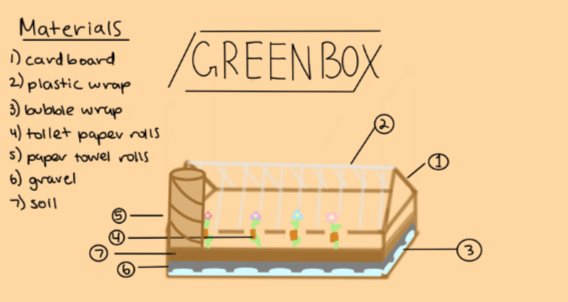 Materials
1) cardboard
2) plastic wrap
3) bubble wrap
4) toilet paper rolls
5) paper towel rolls
6) gravel
7) soil
GREENBOX
2
1
5
4
7
6
3